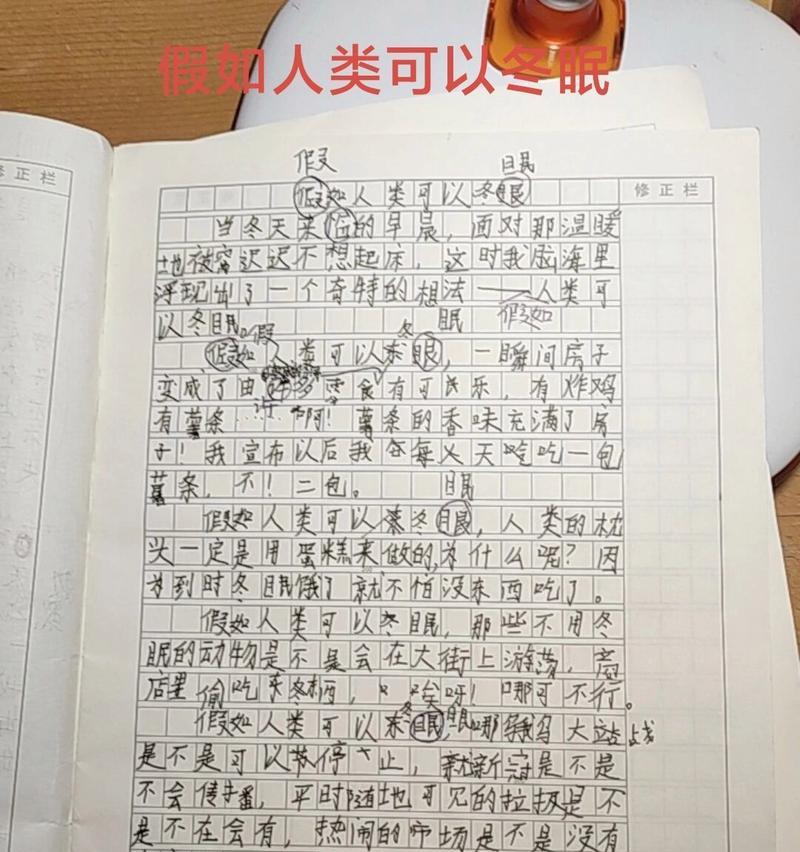 假如人类可以冬眠
修正栏
修正栏
假 眠
假如人类可以冬眠
当冬天来临的早晨，面对那温暖
地被窝迟迟不想起床，这时我脑海里
浮现出了一个奇特的想法——人类可
假如
以冬眠。
假 冬 眠
假如人类可以冬眠，一瞬间房子
变成了由许多零食有可乐，有炸鸡
有薯条……啊！薯条的香味充满了房
子！我宣布以后我每天吃吃一包
薯条，不！二包。
眠
假如人类可以冬眠，人类的枕
头一定是用蛋糕来做的，为什么呢？因
为到时冬眠饿了就不怕没东西吃了。
假如人类可以冬眠，那些不用冬
眠的动物是不是会在大街上游荡，商
店里偷吃东西，唉呀！哪可不行。
冬眠
假如人类可以冬眠，哪俄乌大站战
是不是可以停止，就新冠是不是
不会传播，平时随地可见的拉圾是不
是不在会有，热闹的市场是不是没有